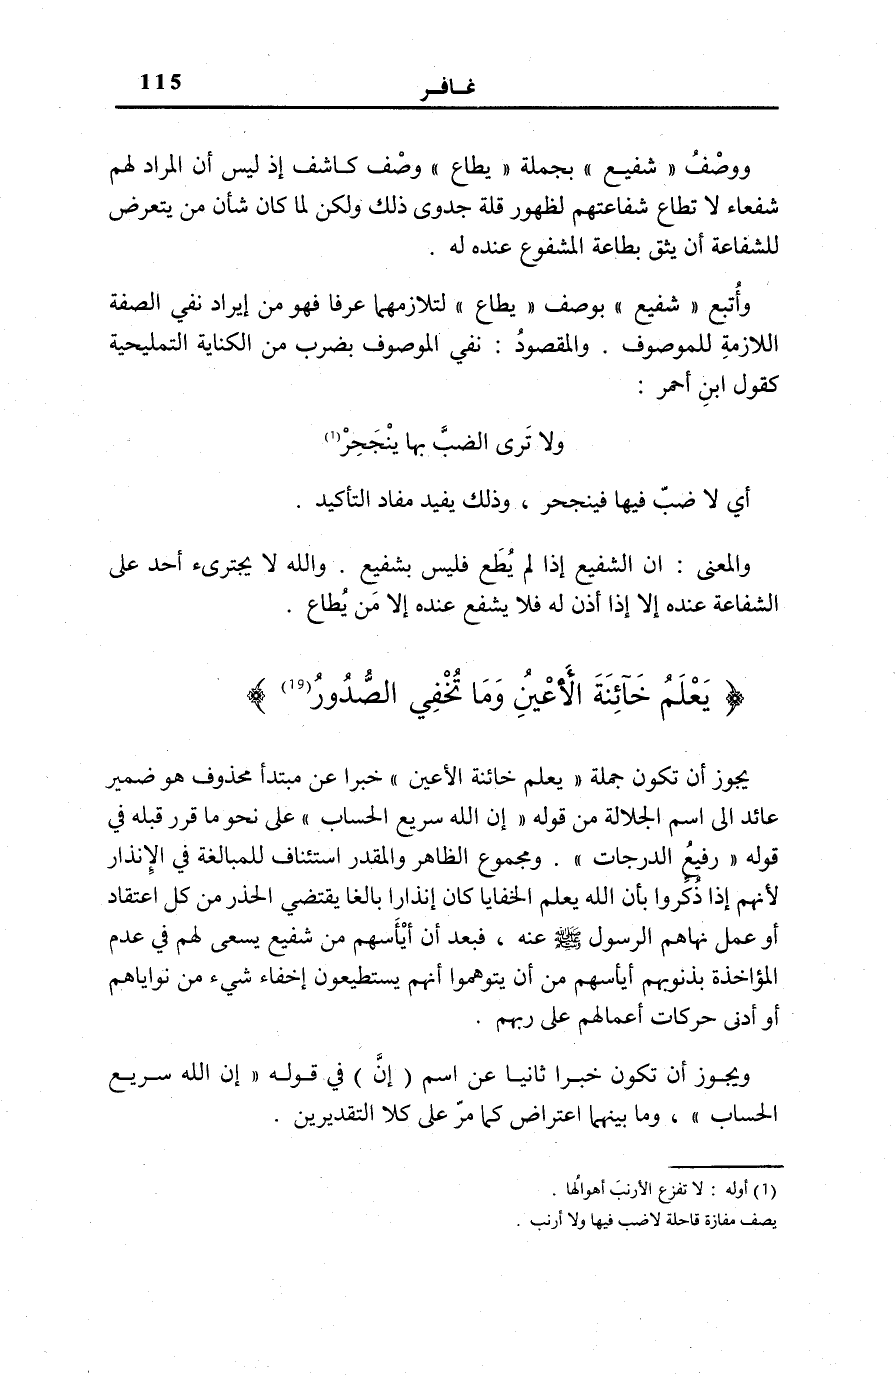 غافر 115
ووصْفُ « شفيع » بجملة « يطاع » وصْف كاشف إذ ليس أن المراد لهم
شفعاء لا تطاع شفاعتهم لظهور قلة جدوى ذلك ولكن لما كان شأن من يتعرض
للشفاعة أن يثق بطاعة المشفوع عنده له .
وأُتبع « شفيع » بوصف « يطاع » لتلازمهما عرفا فهو من إيراد نفي الصفة
اللازمةِ للموصوف . والمقصودُ : نفي الموصوف بضرب من الكناية التمليحية
كقول ابنِ أحمر :
ولا تَرى الضبَّ بها ينْجَحِرْ(1)
أي لا ضبّ فيها فينجحر ، وذلك يفيد مفاد التأكيد .
والمعنى : ان الشفيع إذا لم يُطَع فليس بشفيع . والله لا يجترىء أحد على
الشفاعة عنده إلا إذا أذن له فلا يشفع عنده إلا مَن يُطاع .
﴿ يَعْلَمُ خَآئِنَةَ الْأَعْيُنِ وَمَا تُخْفِي الصُّدُورُ(19) ﴾
يجوز أن تكون جملة « يعلم خائنة الأعين » خبرا عن مبتدأ محذوف هو ضمير
عائد الى اسم الجلالة من قوله « إن الله سريع الحساب » على نحو ما قرر قبله في
قوله « رفيعُ الدرجات » . ومجموع الظاهر والمقدر استئناف للمبالغة في الإِنذار
لأنهم إذا ذُكِّروا بأن الله يعلم الخفايا كان إنذارا بالغا يقتضي الحذر من كل اعتقاد
أو عمل نهاهم الرسول ﷺ عنه ، فبعد أن أيْأَسهم من شفيع يسعى لهم في عدم
المؤاخذة بذنوبهم أيأسهم من أن يتوهموا أنهم يستطيعون إخفاء شيء من نواياهم
أو أدنى حركات أعمالهم على ربهم .
ويجوز أن تكون خبرا ثانيا عن اسم ( إنَّ ) في قوله « إن الله سريع
الحساب » ، وما بينهما اعتراض كما مرّ على كلا التقديرين .
(1) أوله : لا تفزع الأرنبَ أهوالُها .
يصف مفازة قاحلة لاضب فيها ولا أرنب .